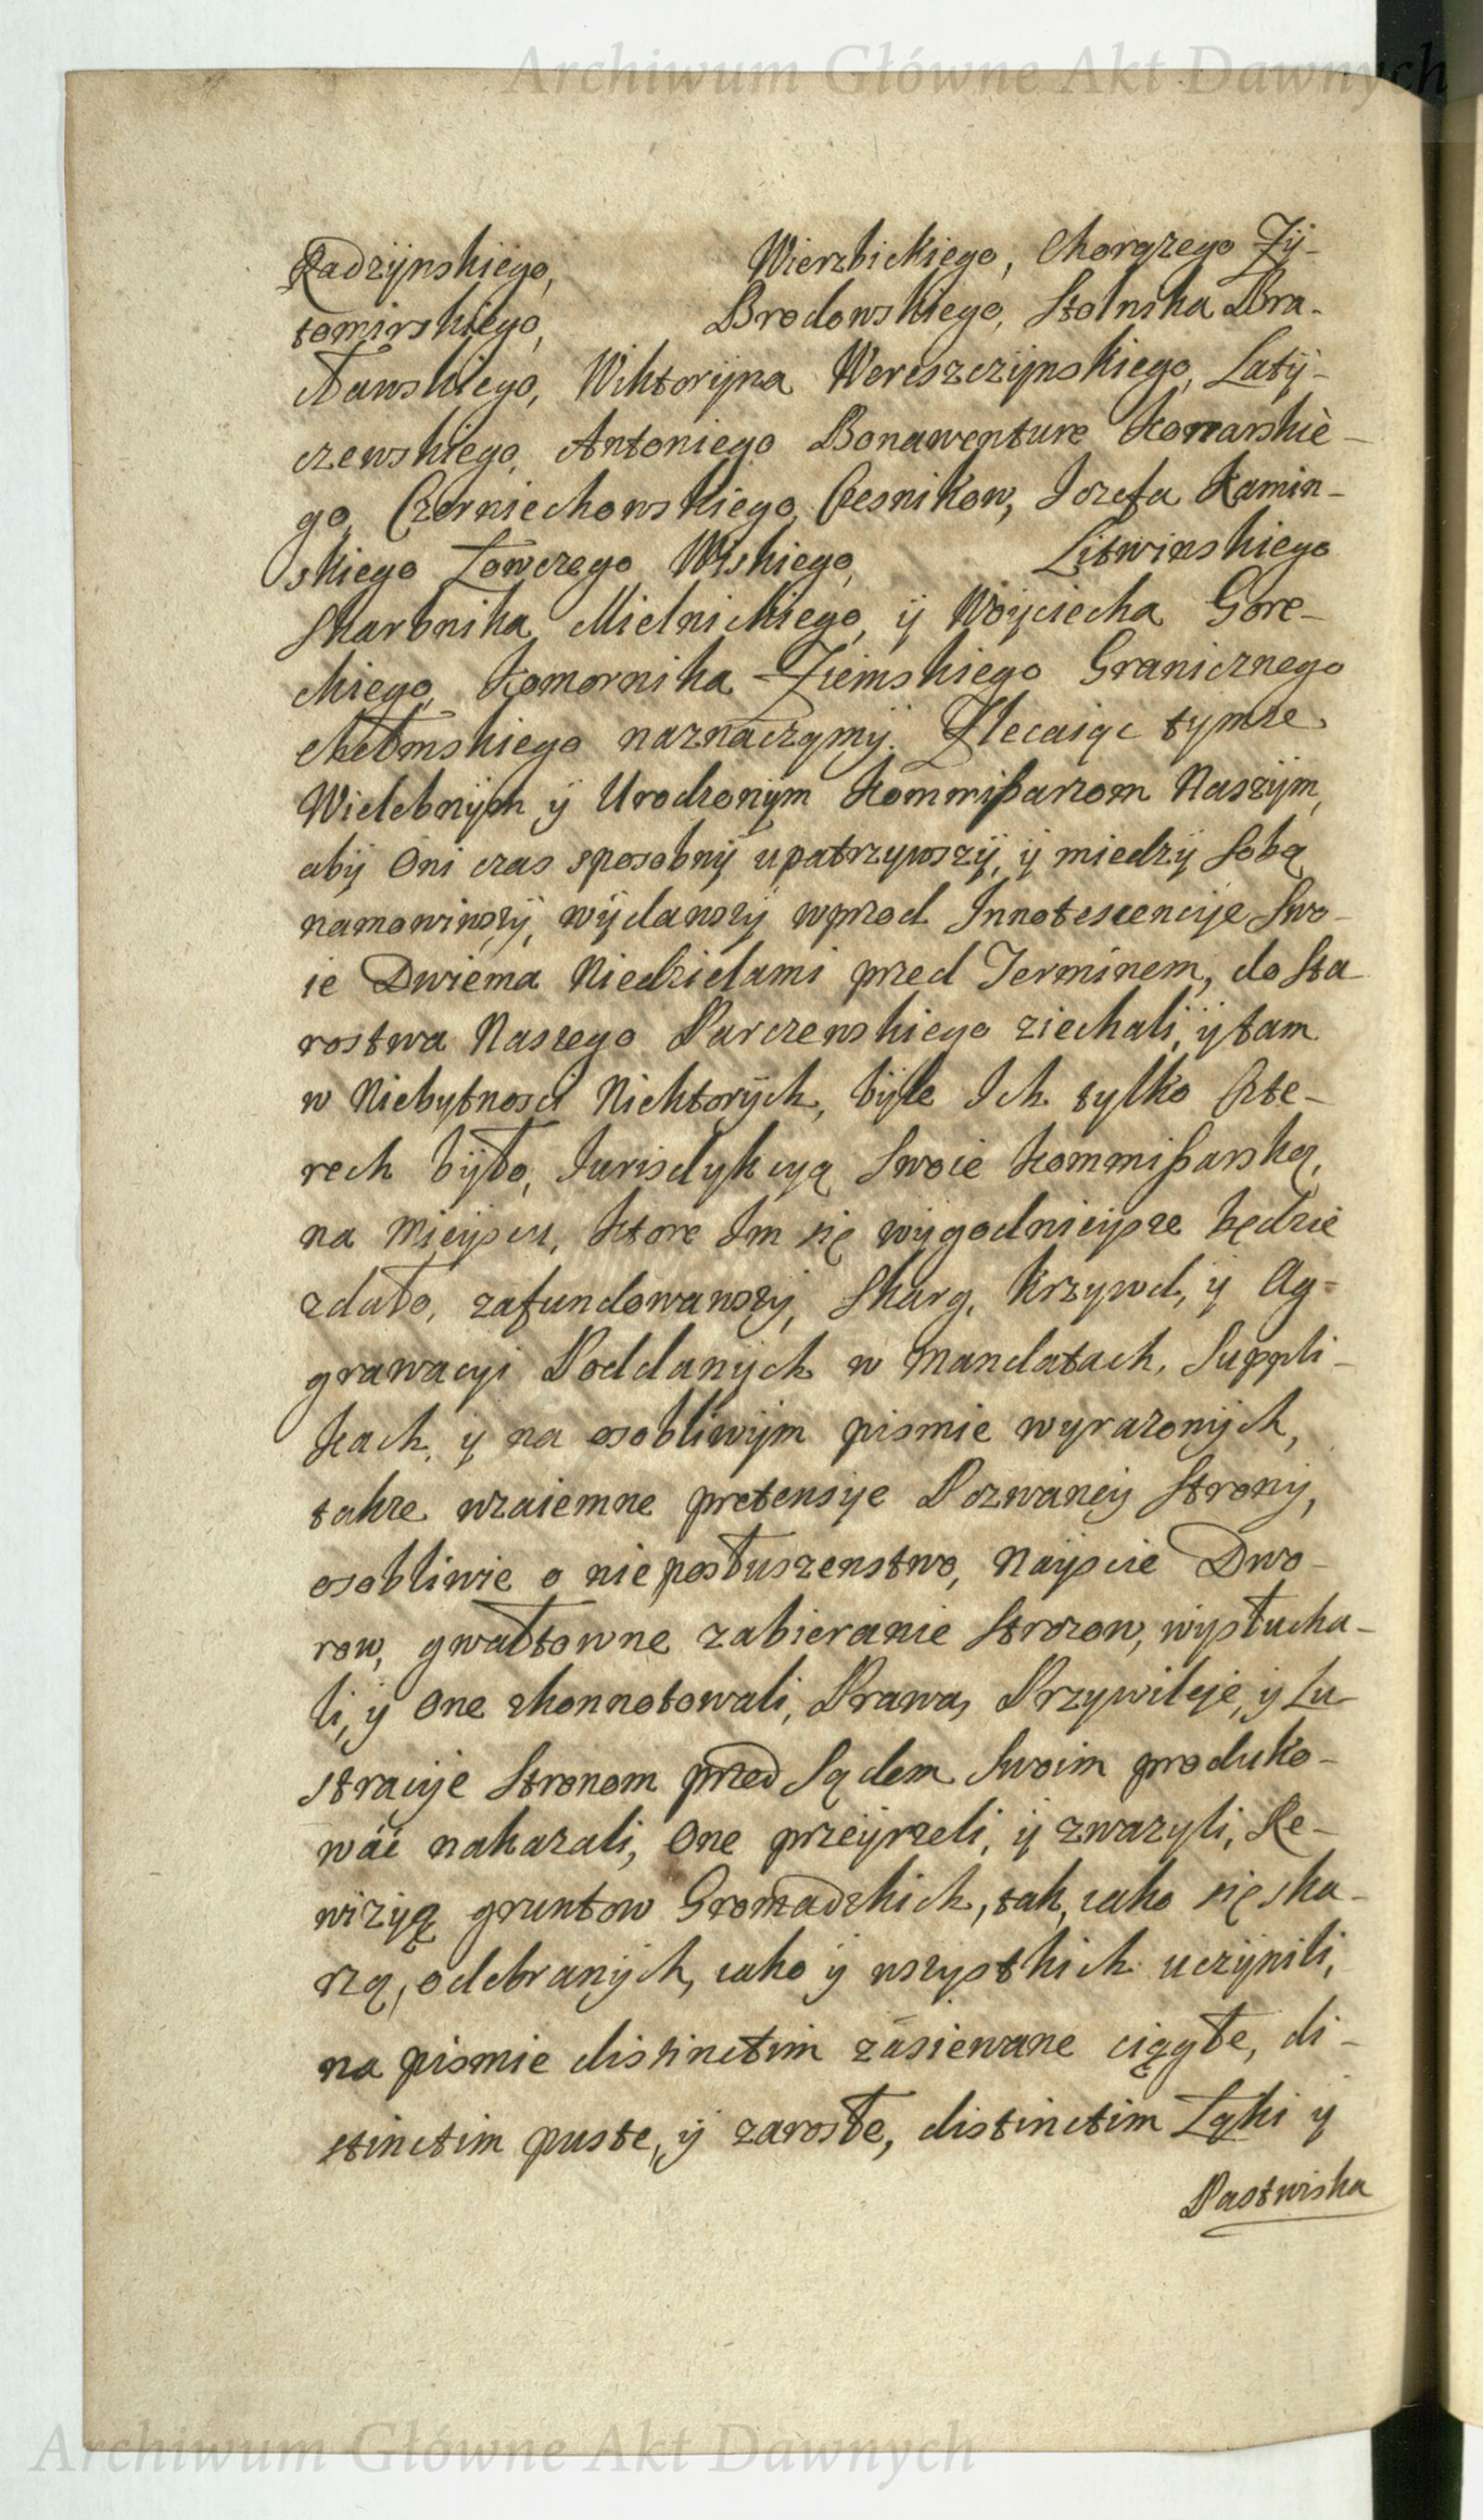 Archiwum Główne Akt Dawnych
Radzijnskiego, Wierzbickiego, Chorązego Zÿ-
tomirskiego, Brodowskiego, Stolnika Bra-
cławskiego, Wiktorÿna Wereszczÿnskiego, Latÿ-
czewskiego, Antoniego Bonawenture Komarskie-
go, Czerniechowskiego, Czesnikow, Iozefa Kamin-
skiego Łowczego Wiskiego, Litwinskiego
Skarbnika Mielnickiego, ÿ Woÿciecha Gore-
ckiego, Komornika Ziemskiego Granicznego
Chełmskiego naznaczymÿ. Zlecaiąc tymze
Wielebnÿm ÿ Urodzonÿm Kommißarzom Naszÿm,
abÿ Oni czas sposobnÿ upatrzywszÿ, ÿ miedzÿ Sobą
namowiwszÿ, wÿdawszÿ wprzod Innotescencÿe Swo-
ie Dwiema Niedzielami przed Terminem, do Sta
rostwa Naszego Parczewskiego ziechali, ÿ tam
w Niebytnosci Niektorÿch, bÿle Ich tylko Czte-
rech bÿło, Iurisdykcyą Swoie Kommißarską,
na Mieÿscu, ktore Im się wÿgodnieÿsze będzie
zdało, zafundowawszÿ, Skarg, Krzywd, ÿ Ag-
grawacyi Poddanÿch w Mandatach, Suppli-
kach, ÿ na osobliwÿm pismie wyrazonÿch,
takze wzaiemne pretensÿe Pozwaneÿ Stronÿ,
osobliwie o nieposłuszenstwo, Naÿscie Dwo-
row, gwałtowne zabieranie Strozow, wÿsłucha-
li, ÿ One skonnotowali, Prawa, Przywileje, ÿ Lu
stracÿe Stronom przed Sądem Swoim produko-
wać nakazali, One przeÿrzeli, ÿ zwazyli, Re-
wizÿą gruntow Gromadzkich, tak, iako się ska-
rzą, odebranÿch, iako ÿ wszystkich uczÿnili,
na pismie distinctim zásiewane ciągłe, di-
stinctim puste, ÿ zarosłe, distinctim Łąki ÿ
Pastwiska
Archiwum Główne Akt Dawnych